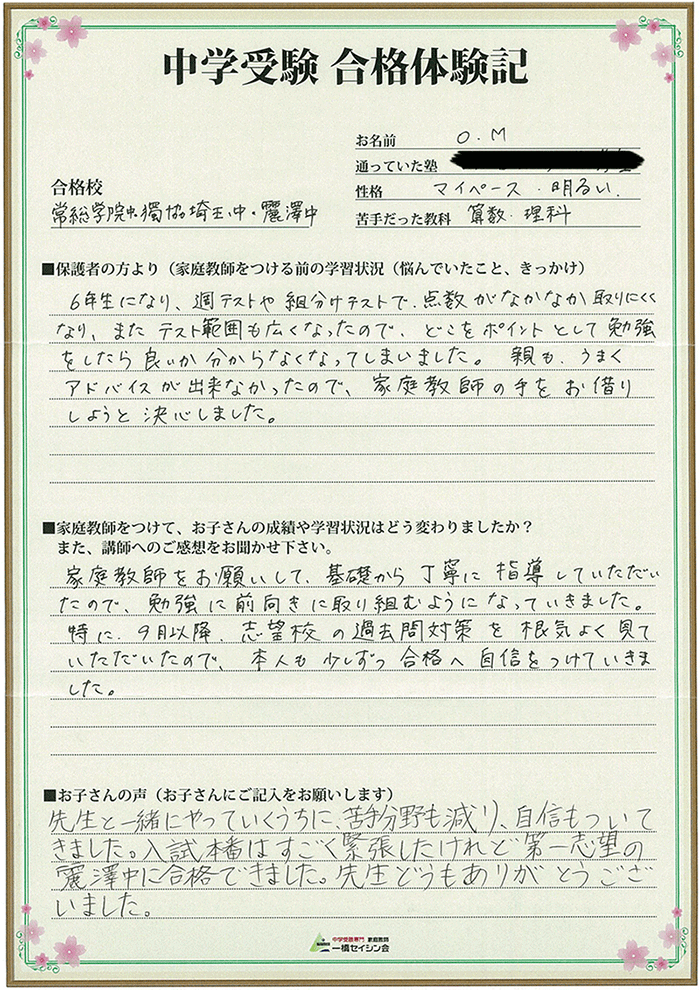 中学受験 合格体験記
お名前 O.M
通っていた塾
合格校
性格 マイペース・明るい.
常総学院中・獨協埼玉中・麗澤中
苦手だった教科 算数・理科
■保護者の方より（家庭教師をつける前の学習状況（悩んでいたこと、きっかけ）
6年生になり、週テストや組分けテストで、点数がなかなか取りにくく
なり、また テスト範囲も広くなったので、どこをポイントとして勉強
をしたら良いか分からなくなってしまいました。 親も、うまく
アドバイスが出来なかったので、家庭教師の手をお借り
しようと決心しました。
■家庭教師をつけて、お子さんの成績や学習状況はどう変わりましたか？
また、講師へのご感想をお聞かせ下さい。
家庭教師をお願いして、基礎から丁寧に指導していただい
たので、勉強に前向きに取り組むようになっていきました。
特に、9月以降、志望校の過去問対策を根気よく見て
いただいたので、本人も少しずつ合格へ自信をつけていきま
した。
■お子さんの声（お子さんにご記入をお願いします）
先生と一緒にやっていくうちに、苦手分野も減り、自信もついて
きました。入試本番はすごく緊張したけれど第一志望の
麗澤中に合格できました。先生どうもありがとうござ
いました。
中学受験専門 家庭教師
一橋セイシン会